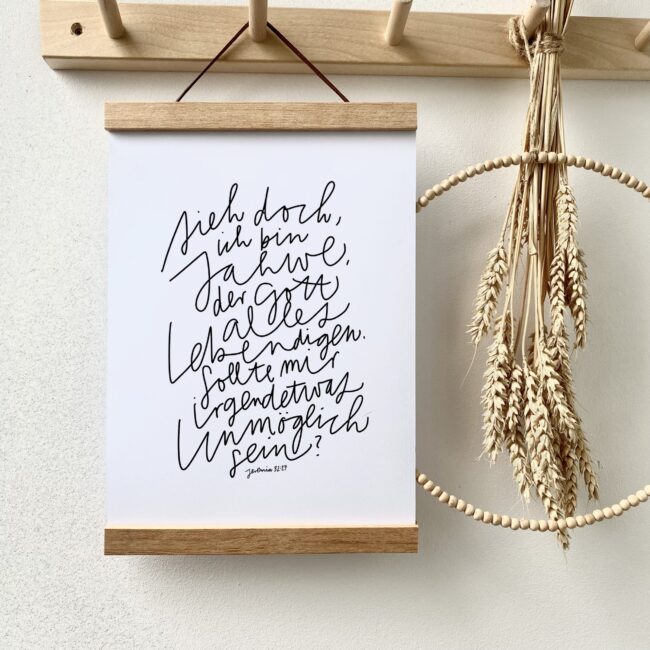 Sieh doch,
ich bin
Jahwe,
der Gott
alles
Lebendigen.
Sollte mir
irgendetwas
Unmöglich
sein?
Jeremia 32:27